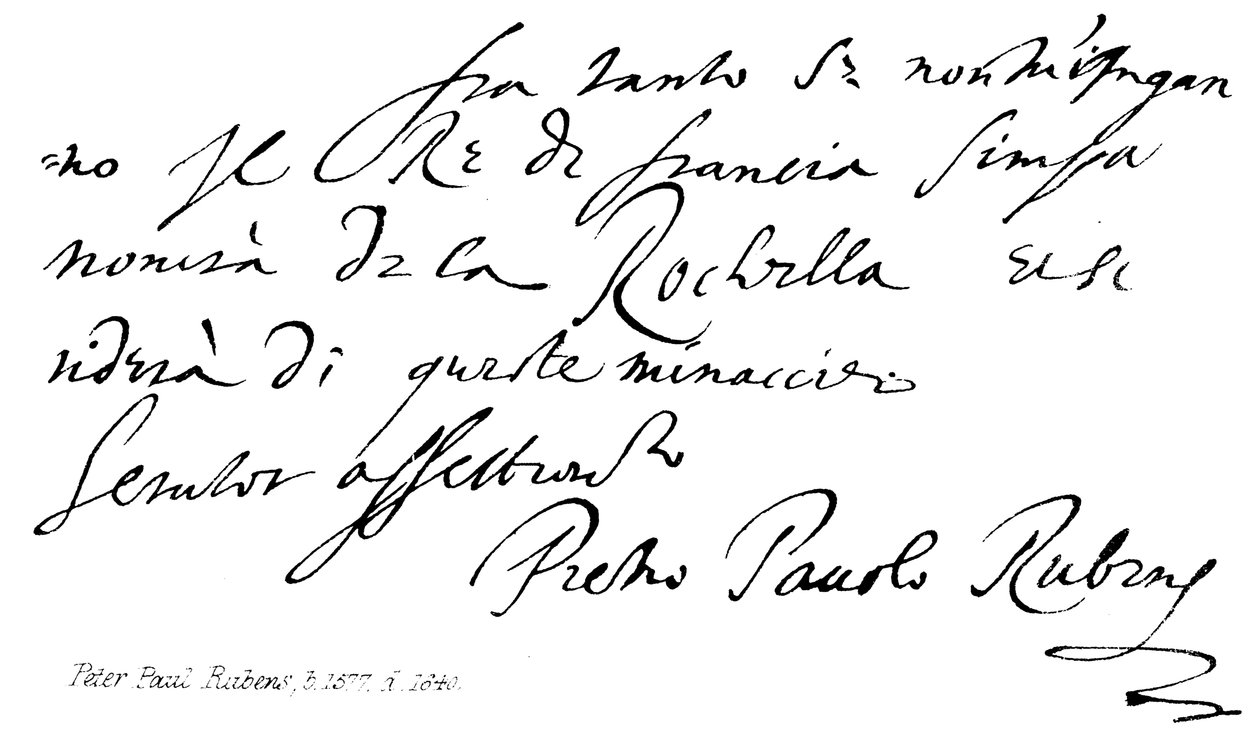 fra tanto Se non m'ingan
=no Il Re di francia simpa
tronirà de la Rochella et se
riderà di queste minaccie.
Servitor affettionatto
Pietro Pauolo Rubens
Peter Paul Rubens, b. 1577. d. 1640.